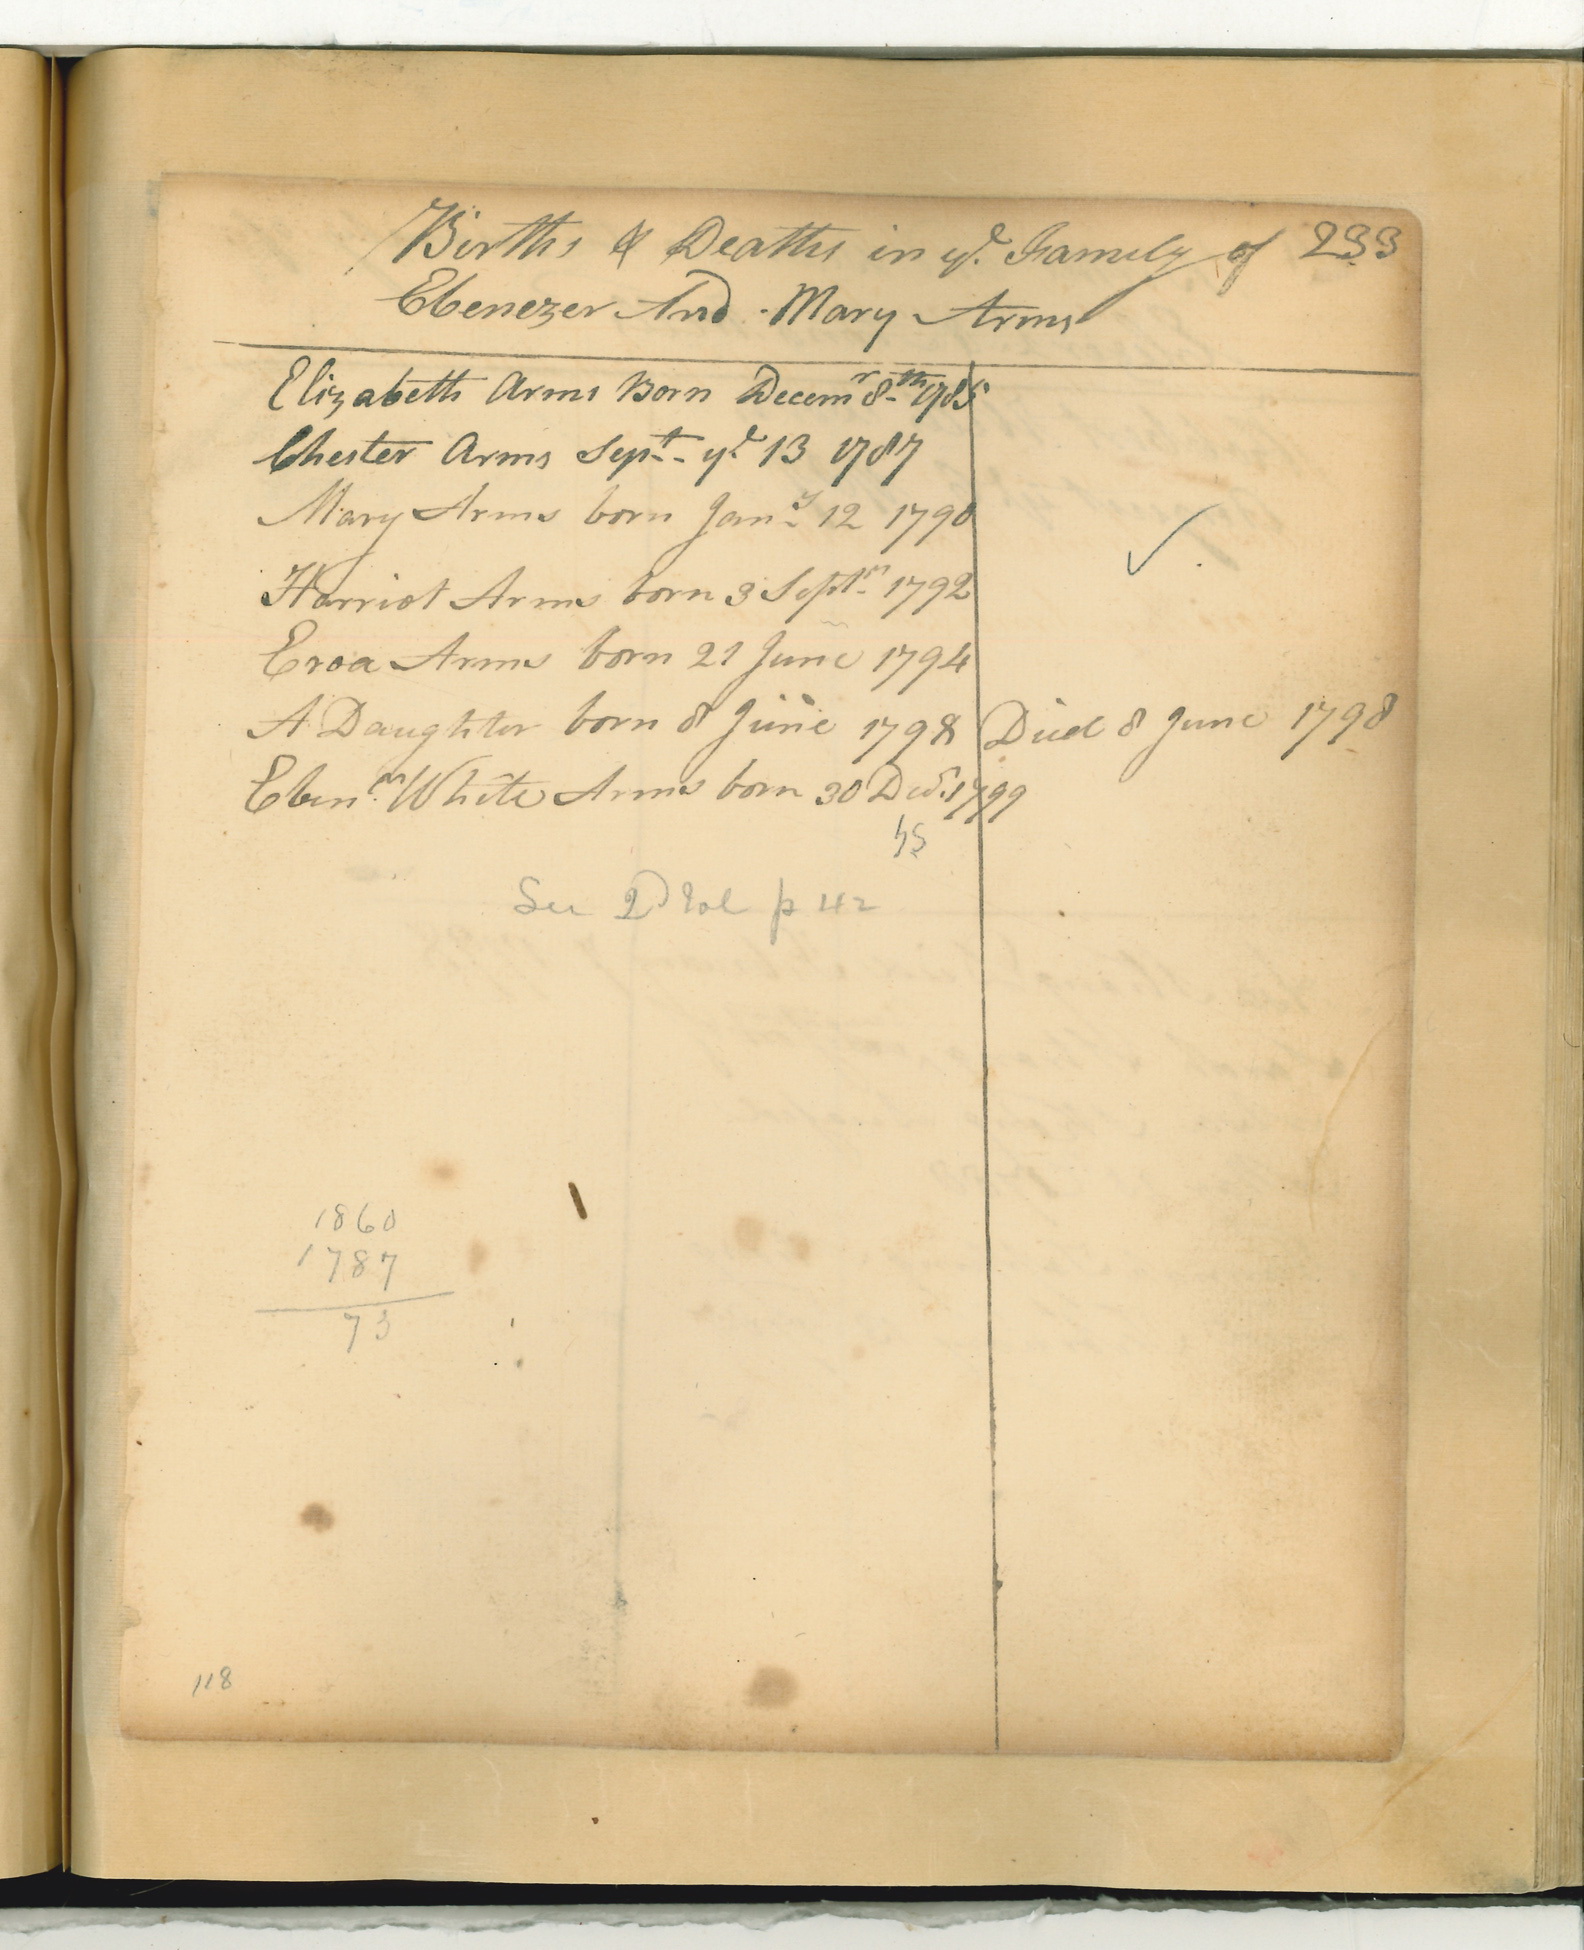 Births & Deaths in ye Family of 233
Ebenezer And Mary Arms
Elizabeth Arms Born Decemr 8th 1785
Chester Arms Sept ye 13 1787
Mary Arms born Jany 12 1790
Harriot Arms born 3 Septr 1792
Eroa Arms born 21 June 1794
A Daughter born 8 June 1798 Died 8 June 1798
Ebenr White Arms born 30 Decr 1799
See 2D Vol p 42
1860
1787
73
118